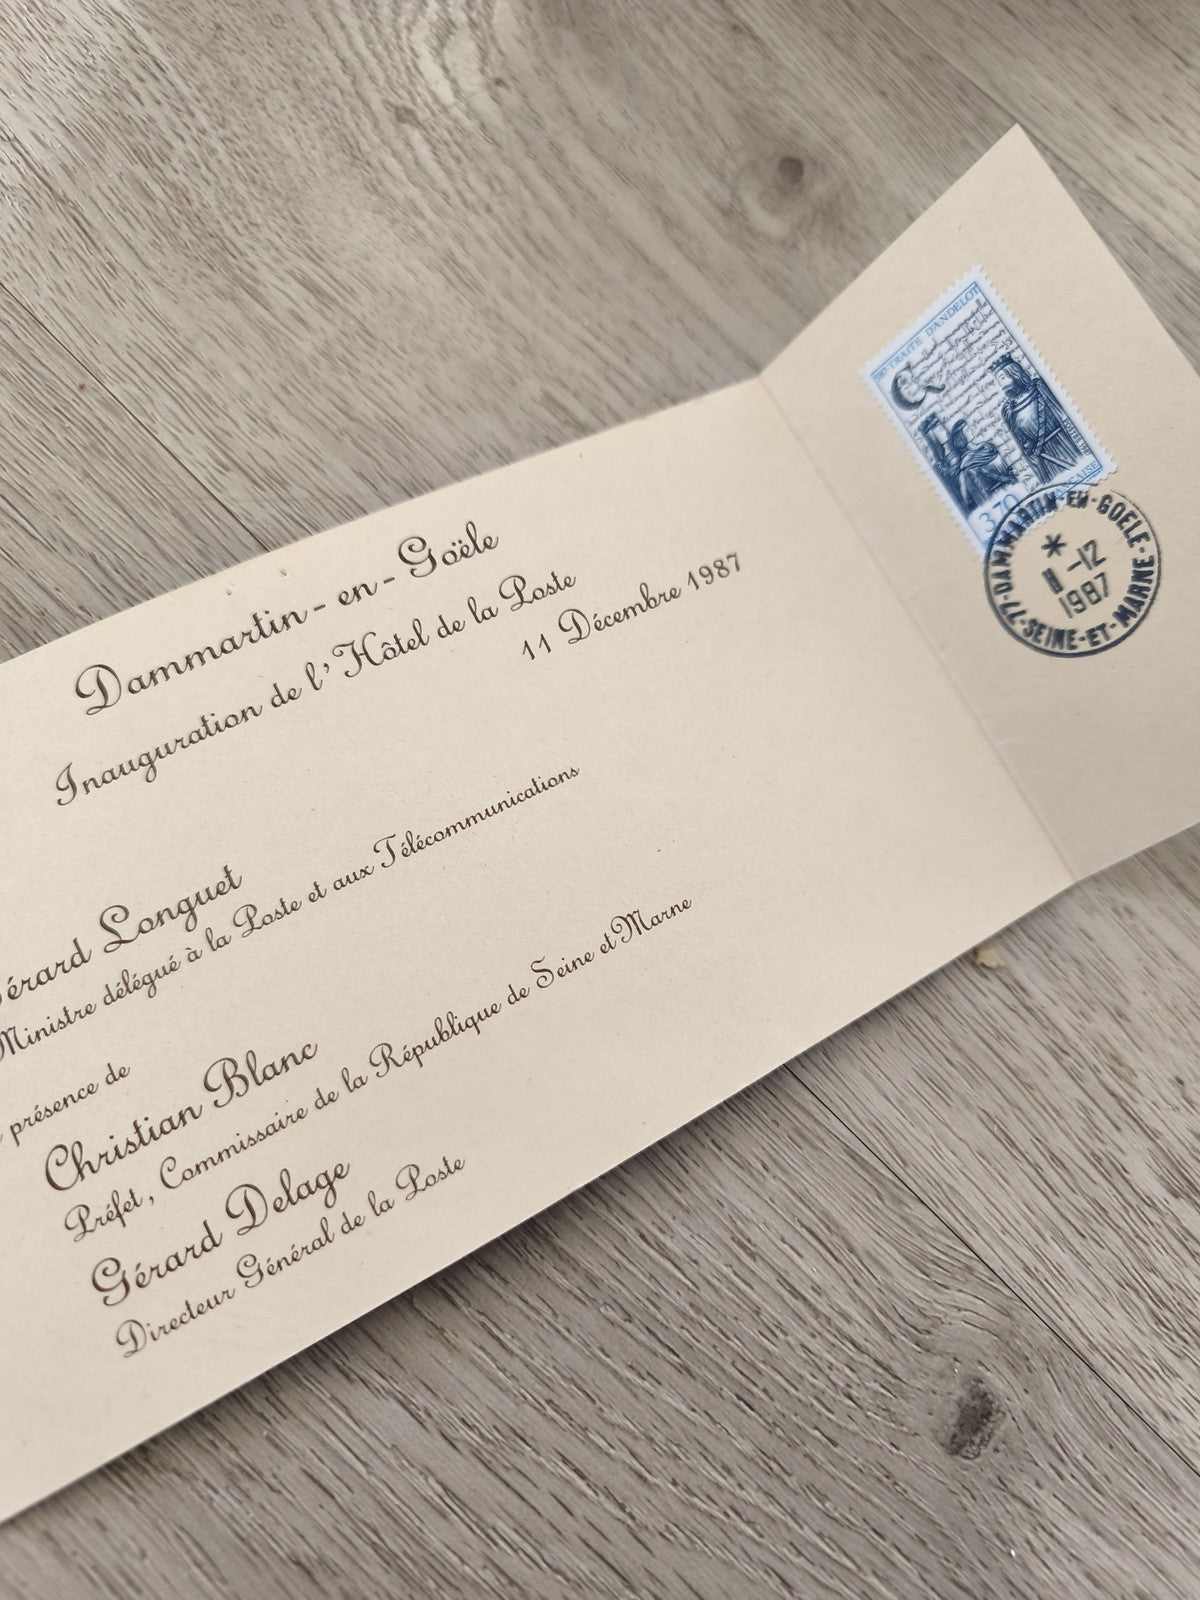 Dammartin-en-Goële
Inauguration de l'Hôtel de la Poste
11 Décembre 1987
Gérard Longuet
Ministre délégué à la Poste et aux Télécommunications
présence de
Christian Blanc
Préfet, Commissaire de la République de Seine et Marne
Gérard Delage
Directeur Général de la Poste
587 TRAITE D'ANDELOT
3,70
77-DAMMARTIN-EN-GOELE-
*
11-12
1987
SEINE-ET-MARNE